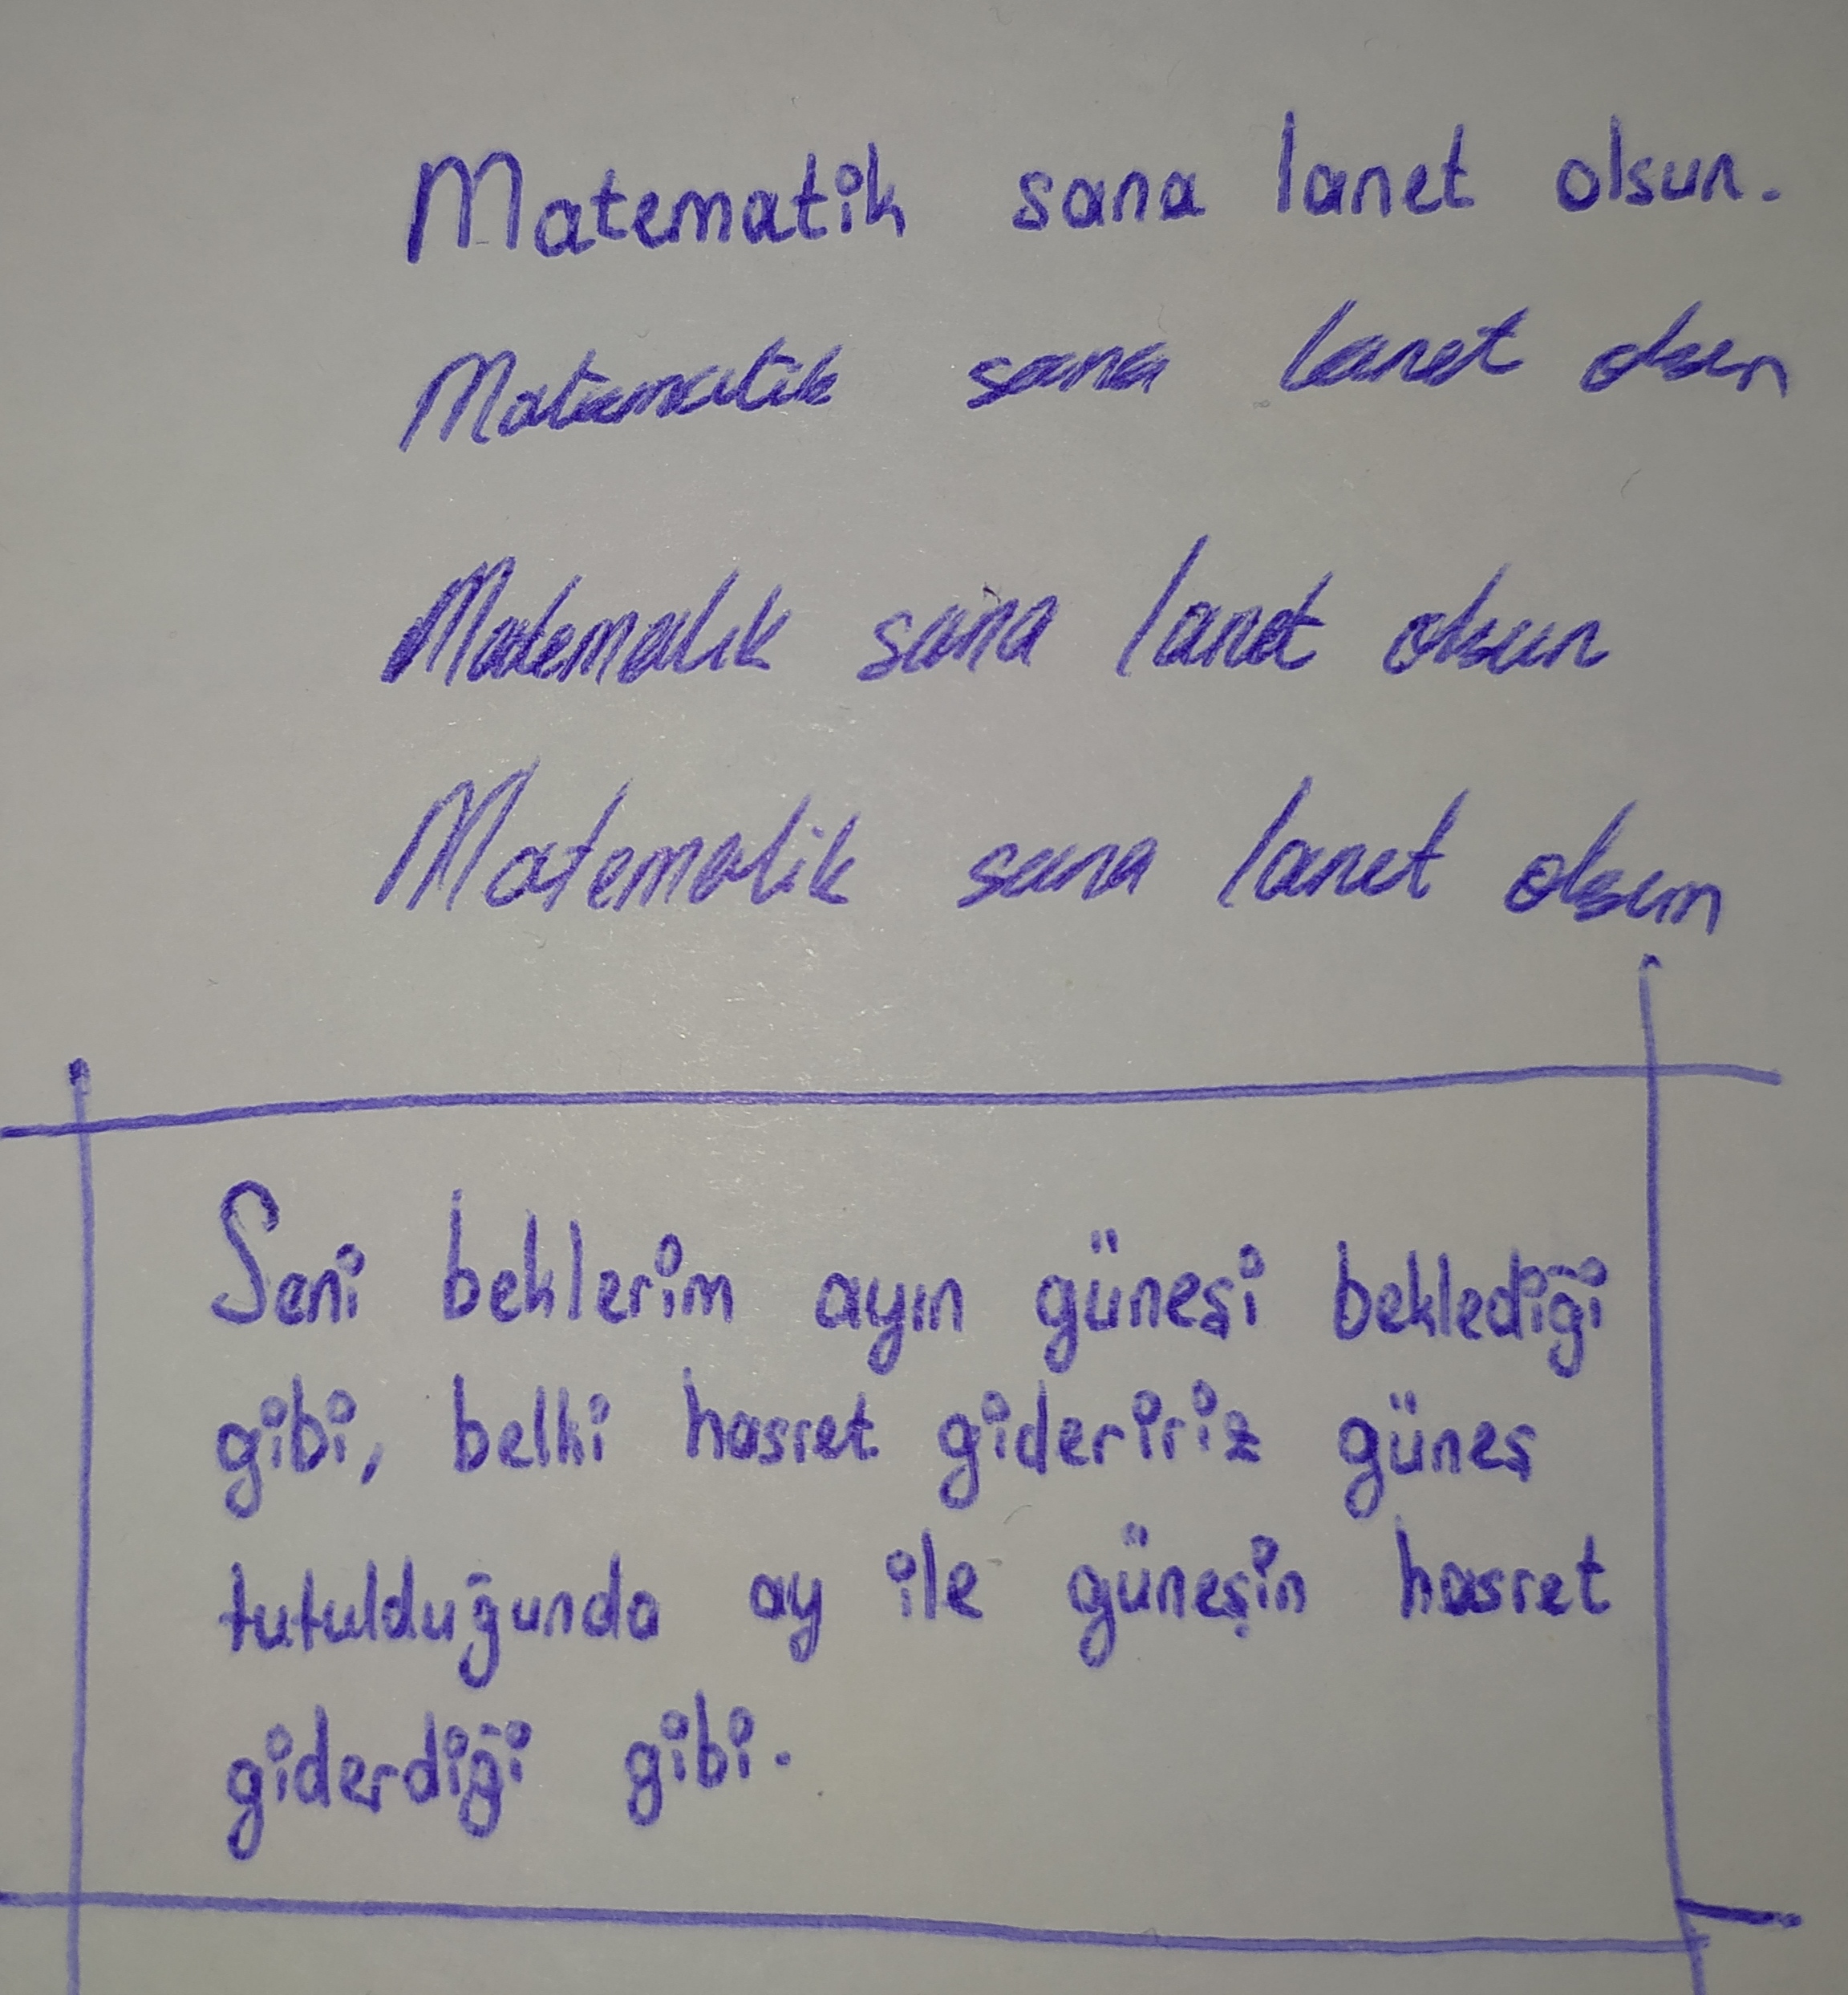 Matematik sana lanet olsun.
Matematik sana lanet olsun
Matematik sana lanet olsun
Matematik sana lanet olsun
Seni beklerim ayın güneşi beklediği
gibi, belki hasret gideririz güneş
tutulduğunda ay ile güneşin hasret
giderdiği gibi.